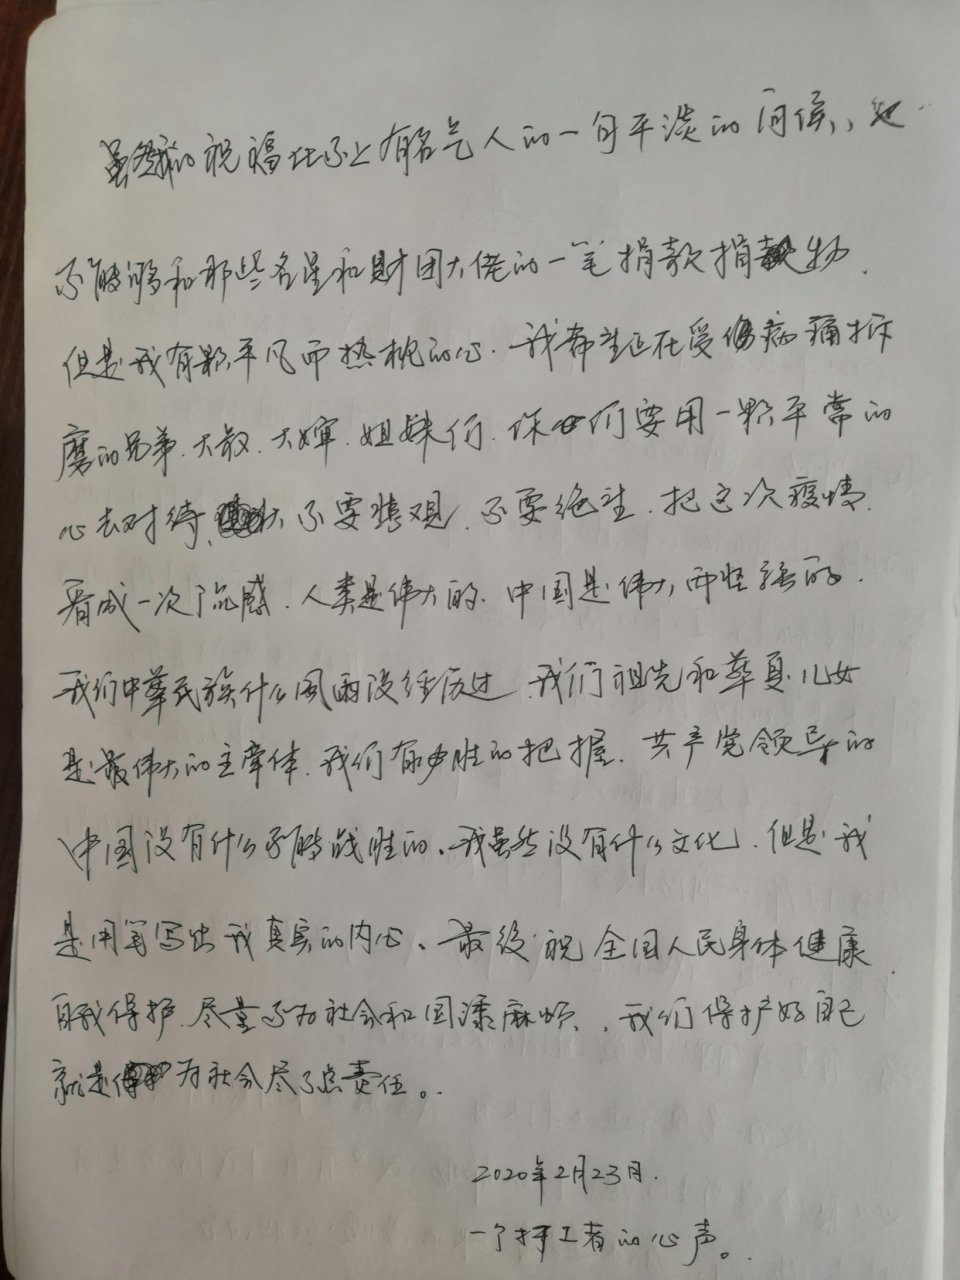 虽然我的祝福比不上有名气人的一句平淡的问候，也
不能够和那些名星和财团大佬的一笔捐款捐物.
但是我有颗平凡而热枕的心.我希望正在受伤病痛折
磨的兄弟.大叔.大婶.姐妹们.你们要用一颗平常的
心去对待、不要悲观.不要绝望.把这次疫情.
看成一次流感.人类是伟大的.中国是伟大而坚强的.
我们中华民族什么风雨没经历过.我们祖先和华夏儿女
是最伟大的主宰体.我们有必胜的把握.共产党领导的
中国没有什么不能战胜的。我虽然没有什么文化.但是我
是用笔写出我真实的内心。最后祝全国人民身体健康.
自我保护.尽量不为社会和国添麻烦.我们保护好自己
就是为社会尽了点责任。
2020年2月23日.
一个打工者的心声。